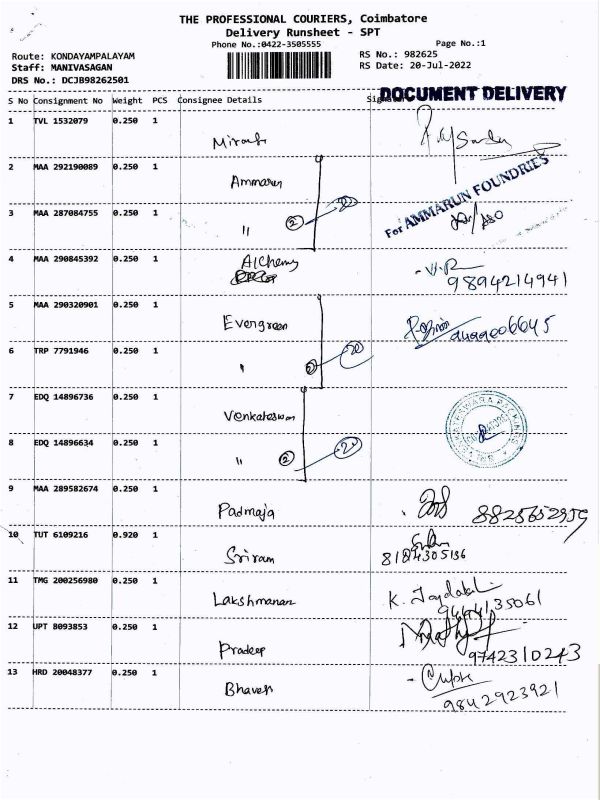 THE PROFESSIONAL COURIERS, Coimbatore
Delivery Runsheet - SPT
Phone No.:0422-3505555
Page No.:1
Route: KONDAYAMPALAYAM
RS No.: 982625
Staff: MANIVASAGAN
RS Date: 20-Jul-2022
DRS No.: DCJB98262501
DOCUMENT DELIVERY
S No Consignment No Weight PCS Consignee Details
1 TVL 1532079 0.250 1
2 MAA 292190089 0.250 1 Ammarun
For AMMARUN FOUNDRIES
3 MAA 287084755 0.250 1 " 2 20
4 MAA 290845392 0.250 1 Alchemy
9894214941
5 MAA 290320901 0.250 1 Evergreen
6 TRP 7791946 0.250 1 " 2 20
7 EDQ 14896736 0.250 1 Venkateswan
8 EDQ 14896634 0.250 1 " 2 20
9 MAA 289582674 0.250 1 Padmaja
10 TUT 6109216 0.920 1 Sriram
8184305136
11 TMG 200256980 0.250 1 Lakshmanan
12 UPT 8093853 0.250 1 Pradeep
9742310243
13 HRD 20048377 0.250 1 Bhavesh
9842923921